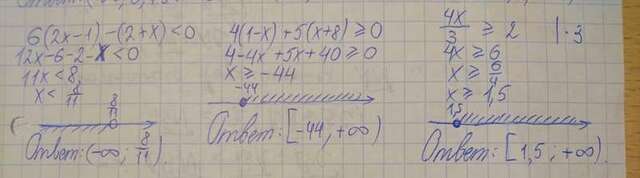 6(2x-1)-(2+x)<0
12x-6-2-x<0
11x<8
x< 8/11
8/11
Ответ: (-∞; 8/11).
4(1-x)+5(x+8)≥0
4-4x+5x+40≥0
x≥-44
-44
Ответ: [-44; +∞)
4x/3 ≥ 2 | · 3
4x≥6
x≥ 6/4
x≥1,5
1,5
Ответ: [1,5; +∞).